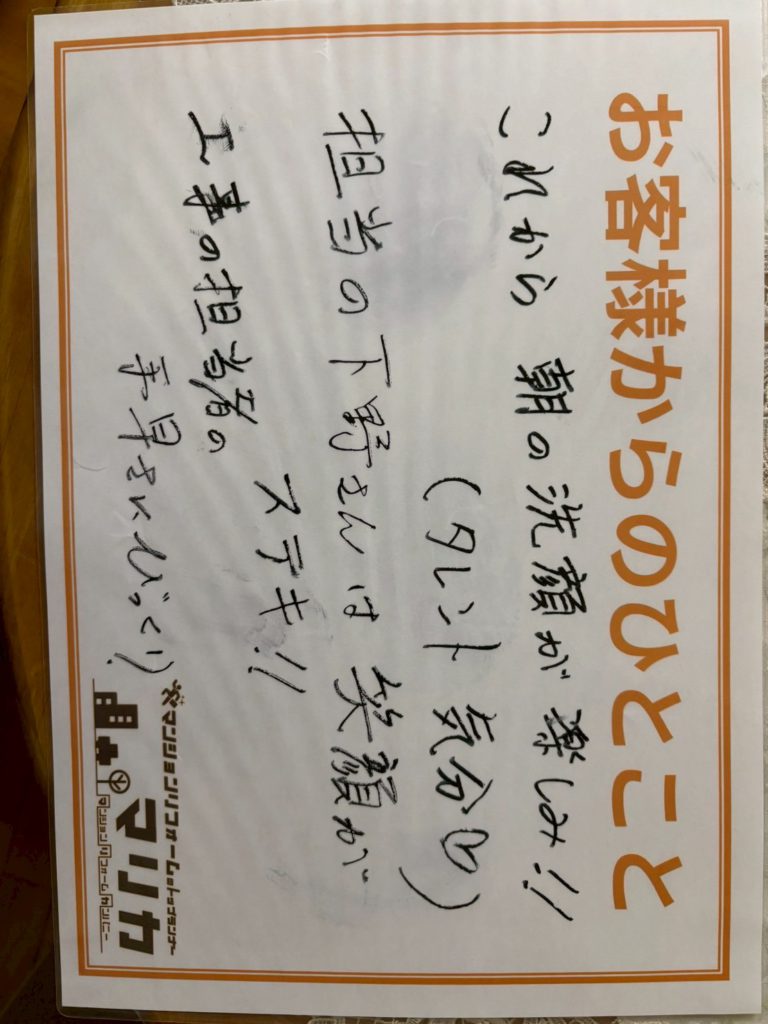 お客様からのひとこと
これから 朝の洗顔が 楽しみ!!
(タレント 気分♡)
担当の下野さんは 笑顔が
ステキ!!
工事の担当者の
手早さにびっくり!
マンションリフォームのトップランナー
マリカ
マンションリフォームカンパニー